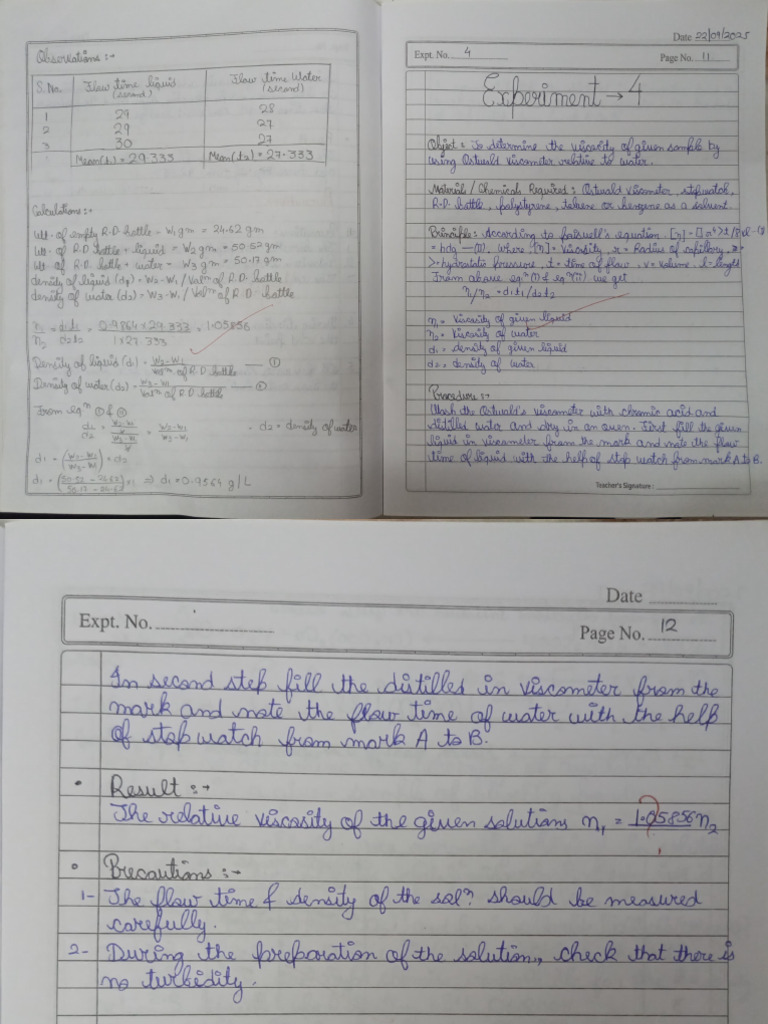 Observations :-
S.No. Flow time liquid (second) Flow time Water (second)
1 29 28
2 29 27
3 30 27
Mean(t₁) = 29.333 Mean(t₂) = 27.333
Calculations :-
Wt. of empty R.D. bottle - W₁ gm = 24.62 gm
Wt. of R.D. bottle + liquid = W₂ gm = 50.52 gm
Wt. of R.D. bottle + water = W₃ gm = 50.17 gm
density of liquid (d₁) = W₂ - W₁ / Volᵐ of R.D. bottle
density of water (d₂) = W₃ - W₁ / Volᵐ of R.D. bottle
n₁/n₂ = d₁t₁/d₂t₂ = 0.9864 × 29.333 / 1×27.333 = 1.05856
Density of liquid (d₁) = W₂-W₁ / Volᵐ of R.D. bottle — ①
Density of water (d₂) = W₃-W₁ / Volᵐ of R.D. bottle — ②
From eqⁿ ① & ②
d₁/d₂ = W₂-W₁/V / W₃-W₁/V = W₂-W₁ / W₃-W₁ . d₂ = density of water
d₁ = (W₂-W₁ / W₃-W₁) × d₂
d₁ = (50.52 - 24.62 / 50.17 - 24.62) ×1 ⇒ d₁ = 0.9564 g/L
Date 22/09/2025
Expt. No. 4
Page No. 11
Experiment → 4
Object : To determine the viscity of given sample by
using Ostwald viscometer relative to water.
Material / Chemicals Required : Ostwald viscometer, stopwatch,
R.D. bottle, polystyrene, toluene or benzene as a solvent.
Principle : According to equation
where [η] = Viscosity, r = Radius of capillary,
= hydrostatic pressure, t = time of flow, v = volume, l = length
From above eqⁿ (i) & eqⁿ(ii) we get
n/n₂ = d₁t₁/d₂t₂
n₁ = Viscosity of given liquid
n₂ = Viscosity of water
d₁ = density of given liquid
d₂ = density of water
Procedure :-
Wash the Ostwald's viscometer with chromic acid and
distilled water and dry in an oven. First fill the given
liquid in viscometer from the mark and note the flow
time of liquid with the help of stop watch from mark A to B.
Teacher's Signature :
Date
Expt. No.
Page No. 12
In second step fill the distilled in viscometer from the
mark and note the flow time of water with the help
of stop watch from mark A to B.
• Result :-
The relative viscosity of the given solutions n₁ = 1.05856 n₂
• Precautions :-
1- The flow time & density of the solⁿ should be measured
carefully.
2- During the preparation of the solution, check that there is
no turbidity.